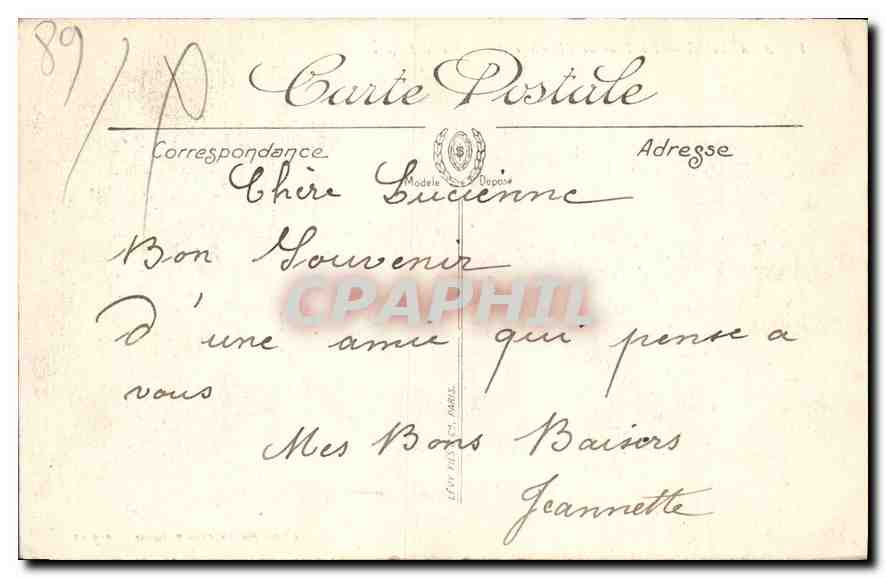 89
Carte Postale
Correspondance
Adresse
Modèle Déposé
Chère Lucienne
Bon Souvenir
CPAPHIL
d'une amie qui pense a
vous
Mes Bons Baisers
Jeannette
LÉVY FILS & Cie, PARIS.